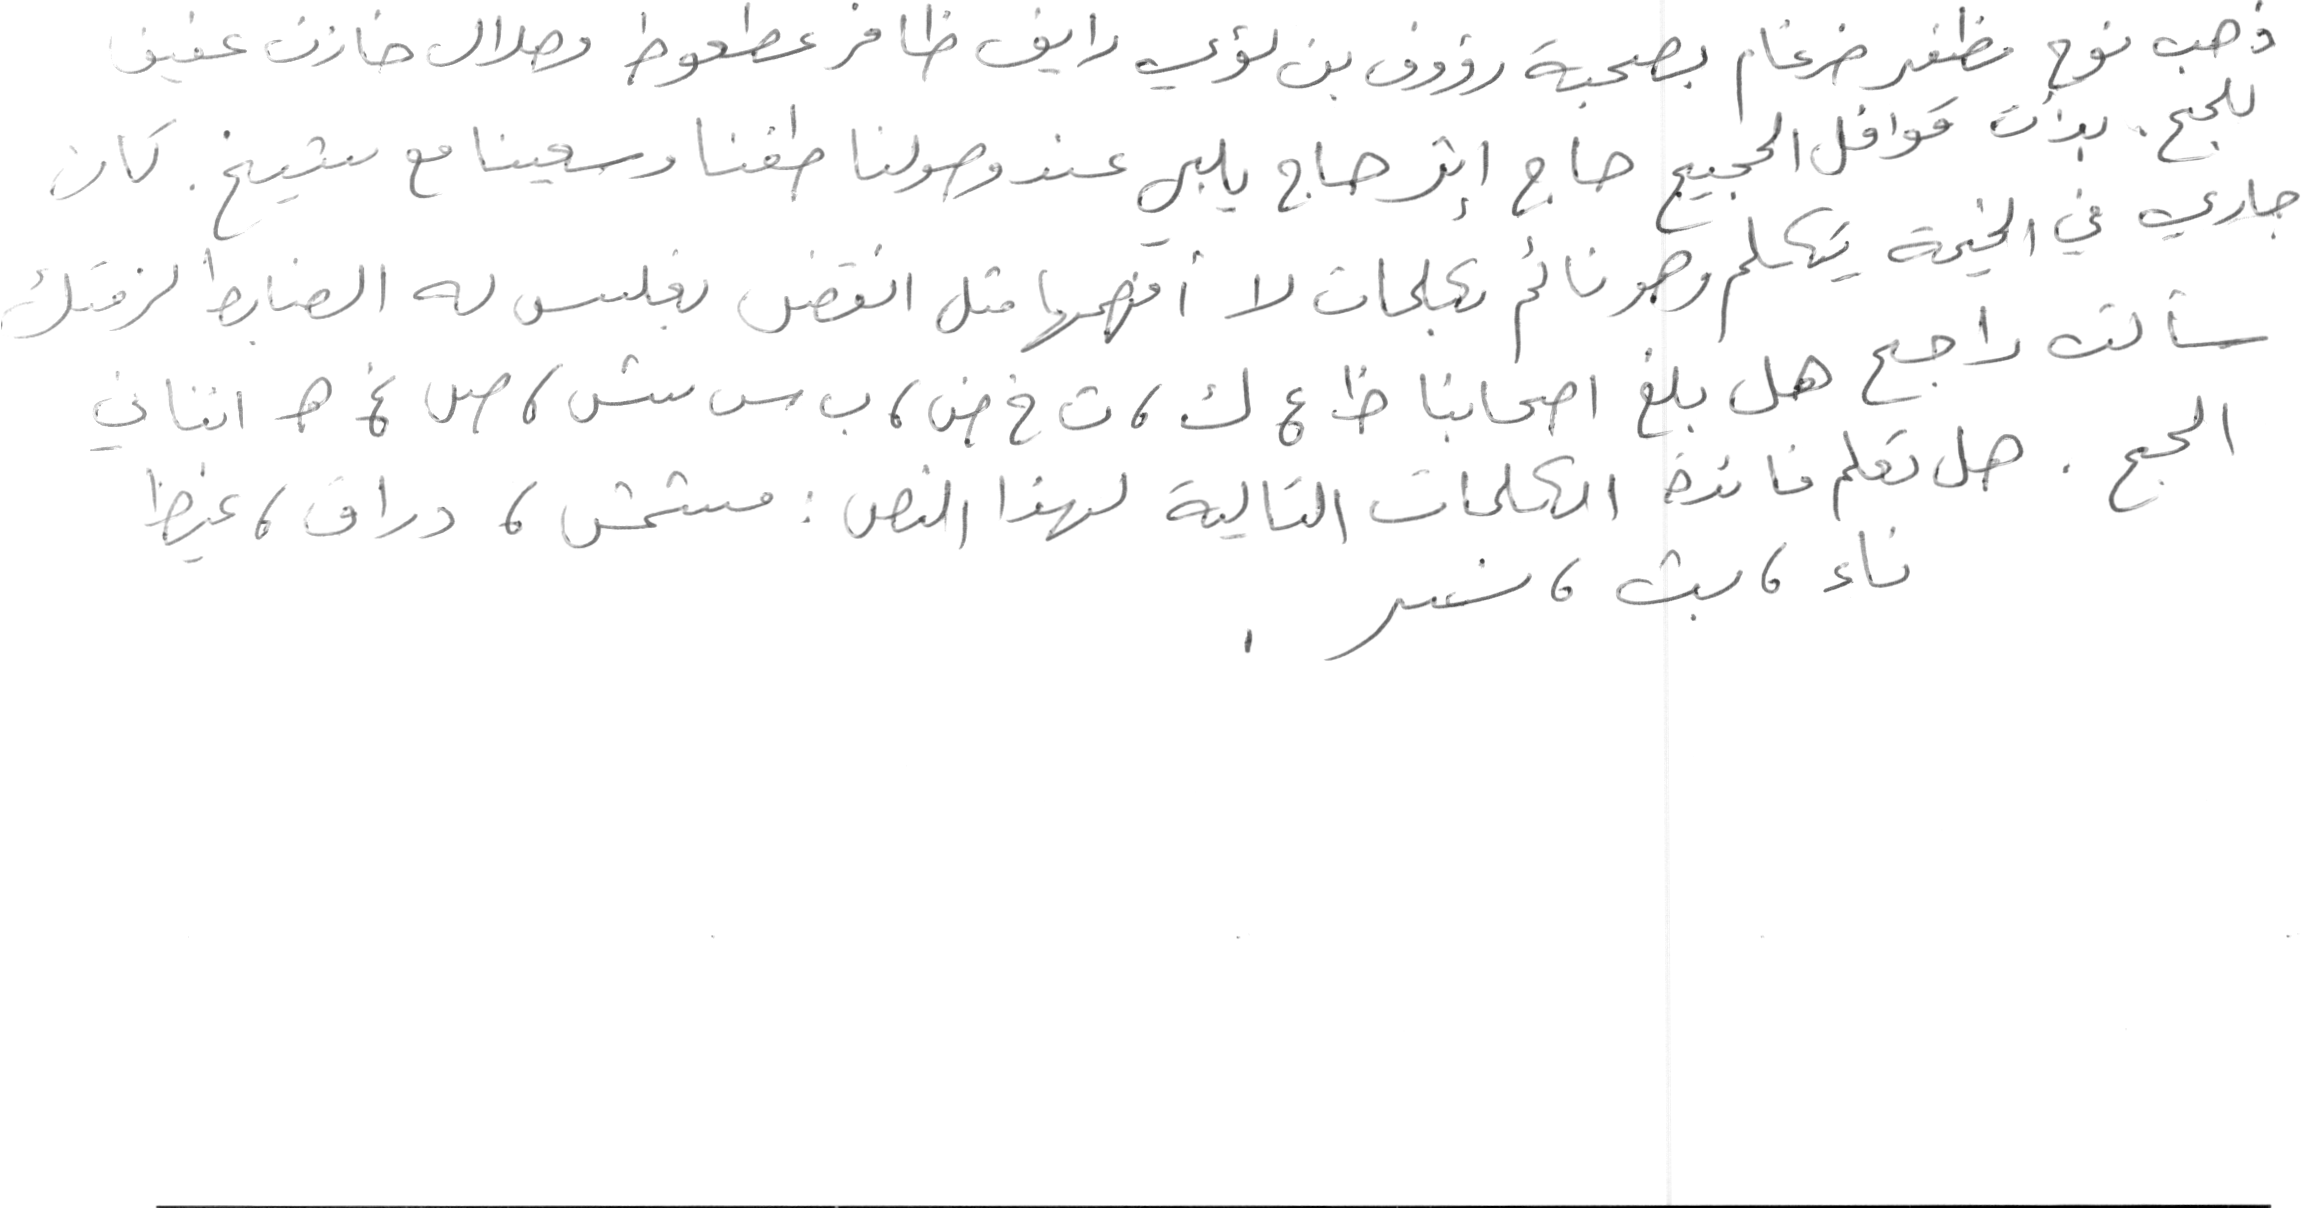 ذهب نوح مظفر ضرغام بصحبة رؤوف بن لؤي رايف ظافر عطعوط وهلال خازن عفيف
للحج. بدأت قوافل الحجيج حاج إثر حاج يلبي عند وصولنا طفنا وسعينا مع شيخ. كان
جاري في الخيمة يتكلم وهو نائم بكلمات لا أفهمها مثل انقض بغلس له الضابط لزمتك
سألت راجح هل بلغ اصحابنا ظ ع ك، ت خ ض، ب س ش، ص غ ه اثنان
الحج. هل تعلم فائدة الكلمات التالية لهذا النص: مشمش، دراق، غيظ
ناء، بث، نسر.